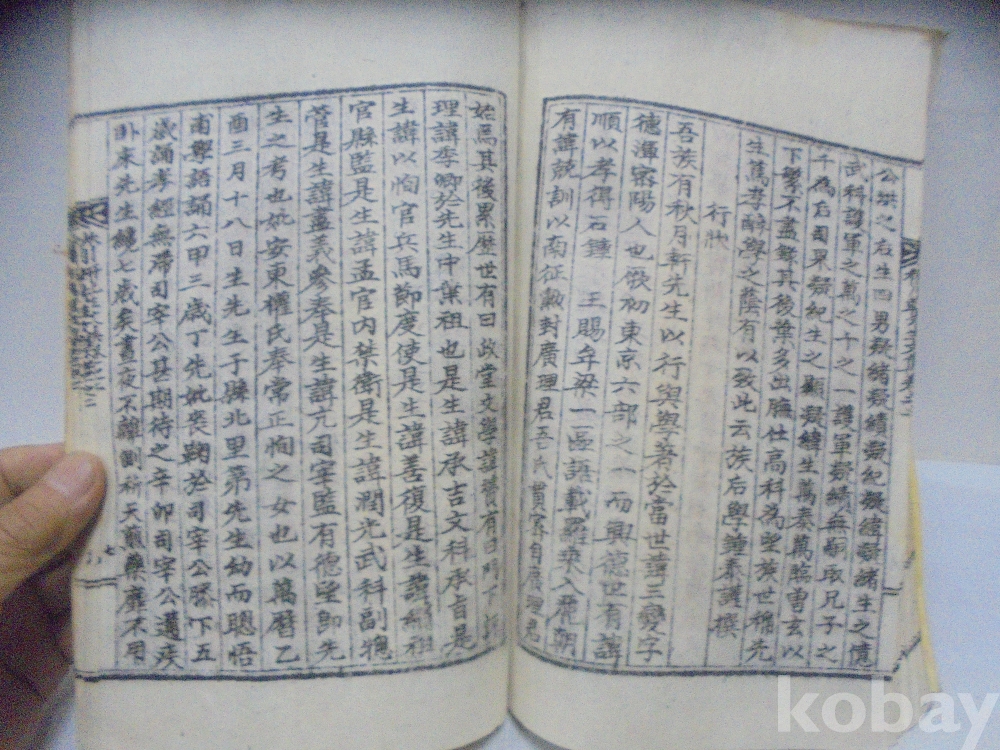 武科護軍之萬之十之一護軍擬績無嗣取兄子之
下繁不盡錄其後葉多出膴仕高科爲望族世稱先
生篤孝醇學之蔭有以致此云族后學鍾泰謹撰
行狀
吾族有秋月軒先生以行與學著於當世諱三變字
德渾密陽人也歃初東京六部之一而興德世有諱
順以孝得石鍾 王賜牟梁一區語載羅乘入麗朝
有諱競訓以南征勲封廣理君吾氏貫密自廣理君
始焉其後累歷世有曰政堂文學諱賛有曰門下
理諱季卿於先生中葉祖也是生諱承吉文科承旨是
生諱以恂官兵馬節度使是生諱善復是生諱
官縣監是生諱孟官内禁衛是生諱潤光武科副摠
管是生諱盡義參奉是生諱亢司宰監有德望卽先
生之考也妣安東權氏奉常正恂之女也以萬曆乙
酉三月十八日生先生于縣北里第先生幼而聰悟
甫學語誦六甲三歲丁先妣喪鞠於司宰公膝下五
歲誦孝經無滯司宰公甚期待之辛卯司宰公遘疾
卧床先生纔七歲矣晝夜不離側祈天煎藥靡不用
kobay